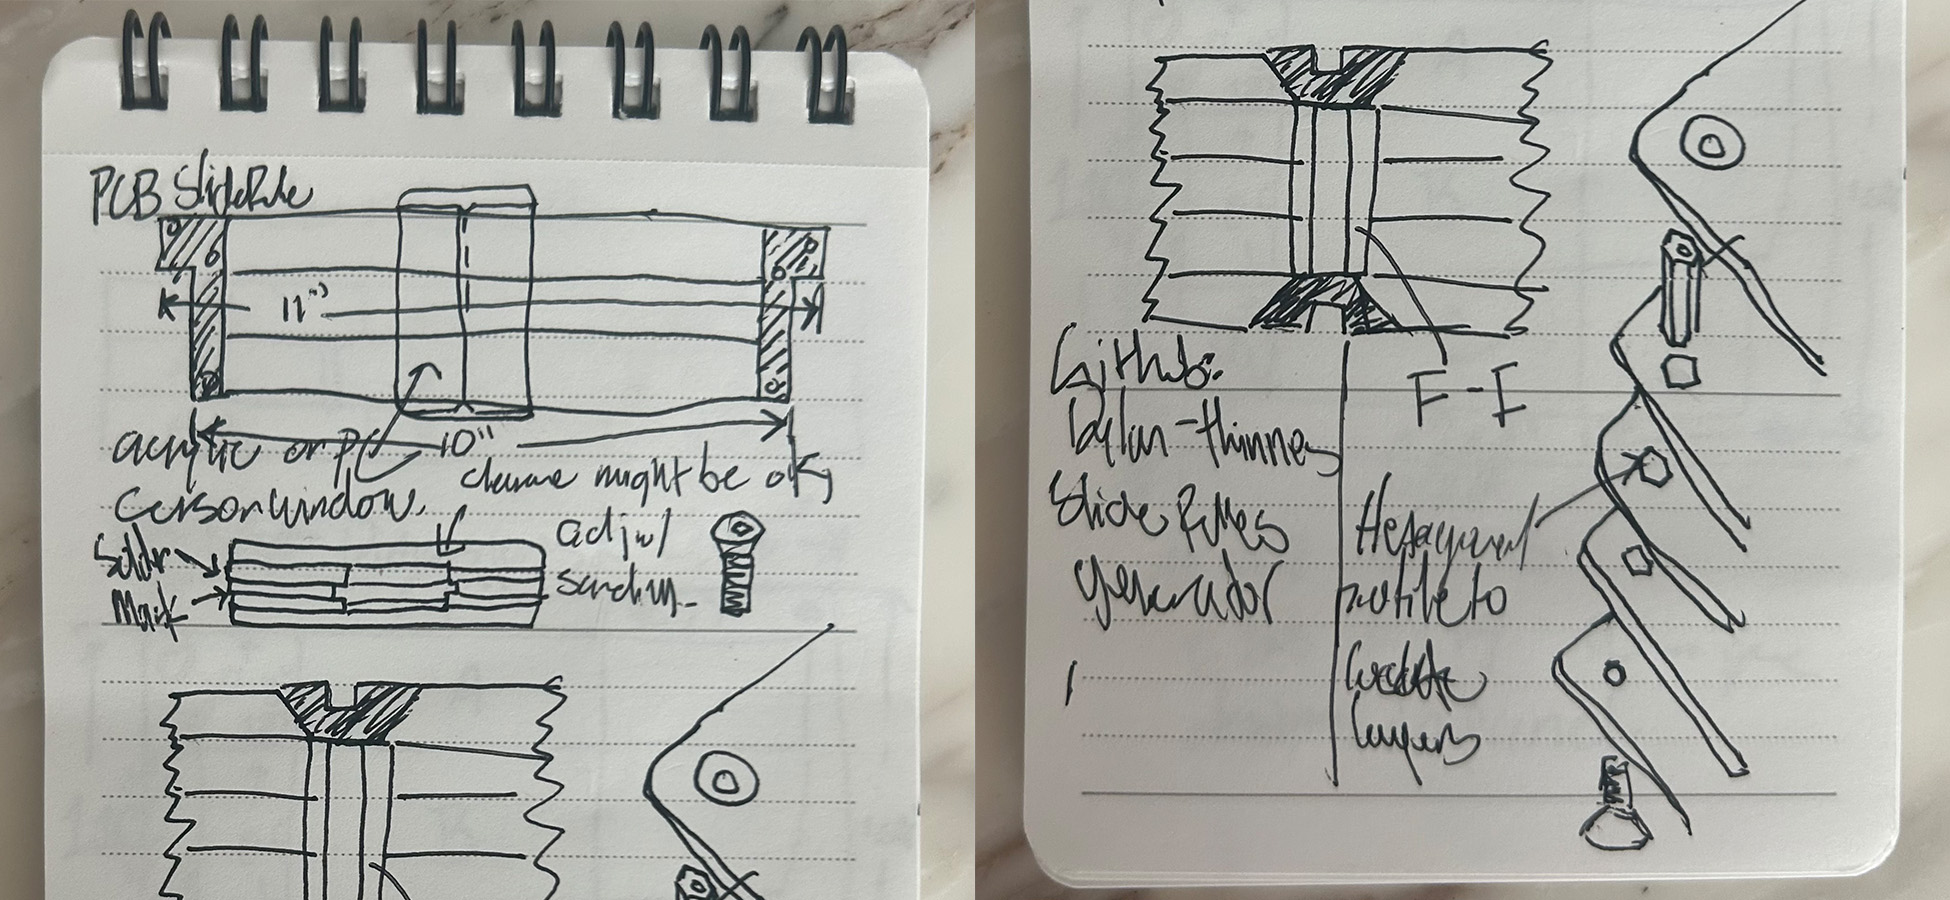 PCB SlideRule
11"
10"
acrylic or PC
Cursor window.
might be ok,
Solder
Mask
adj w/
sanding.
Github:
Dylan-thinnes
Slide Rules
generator
F-F
Hexagonal
to
layers